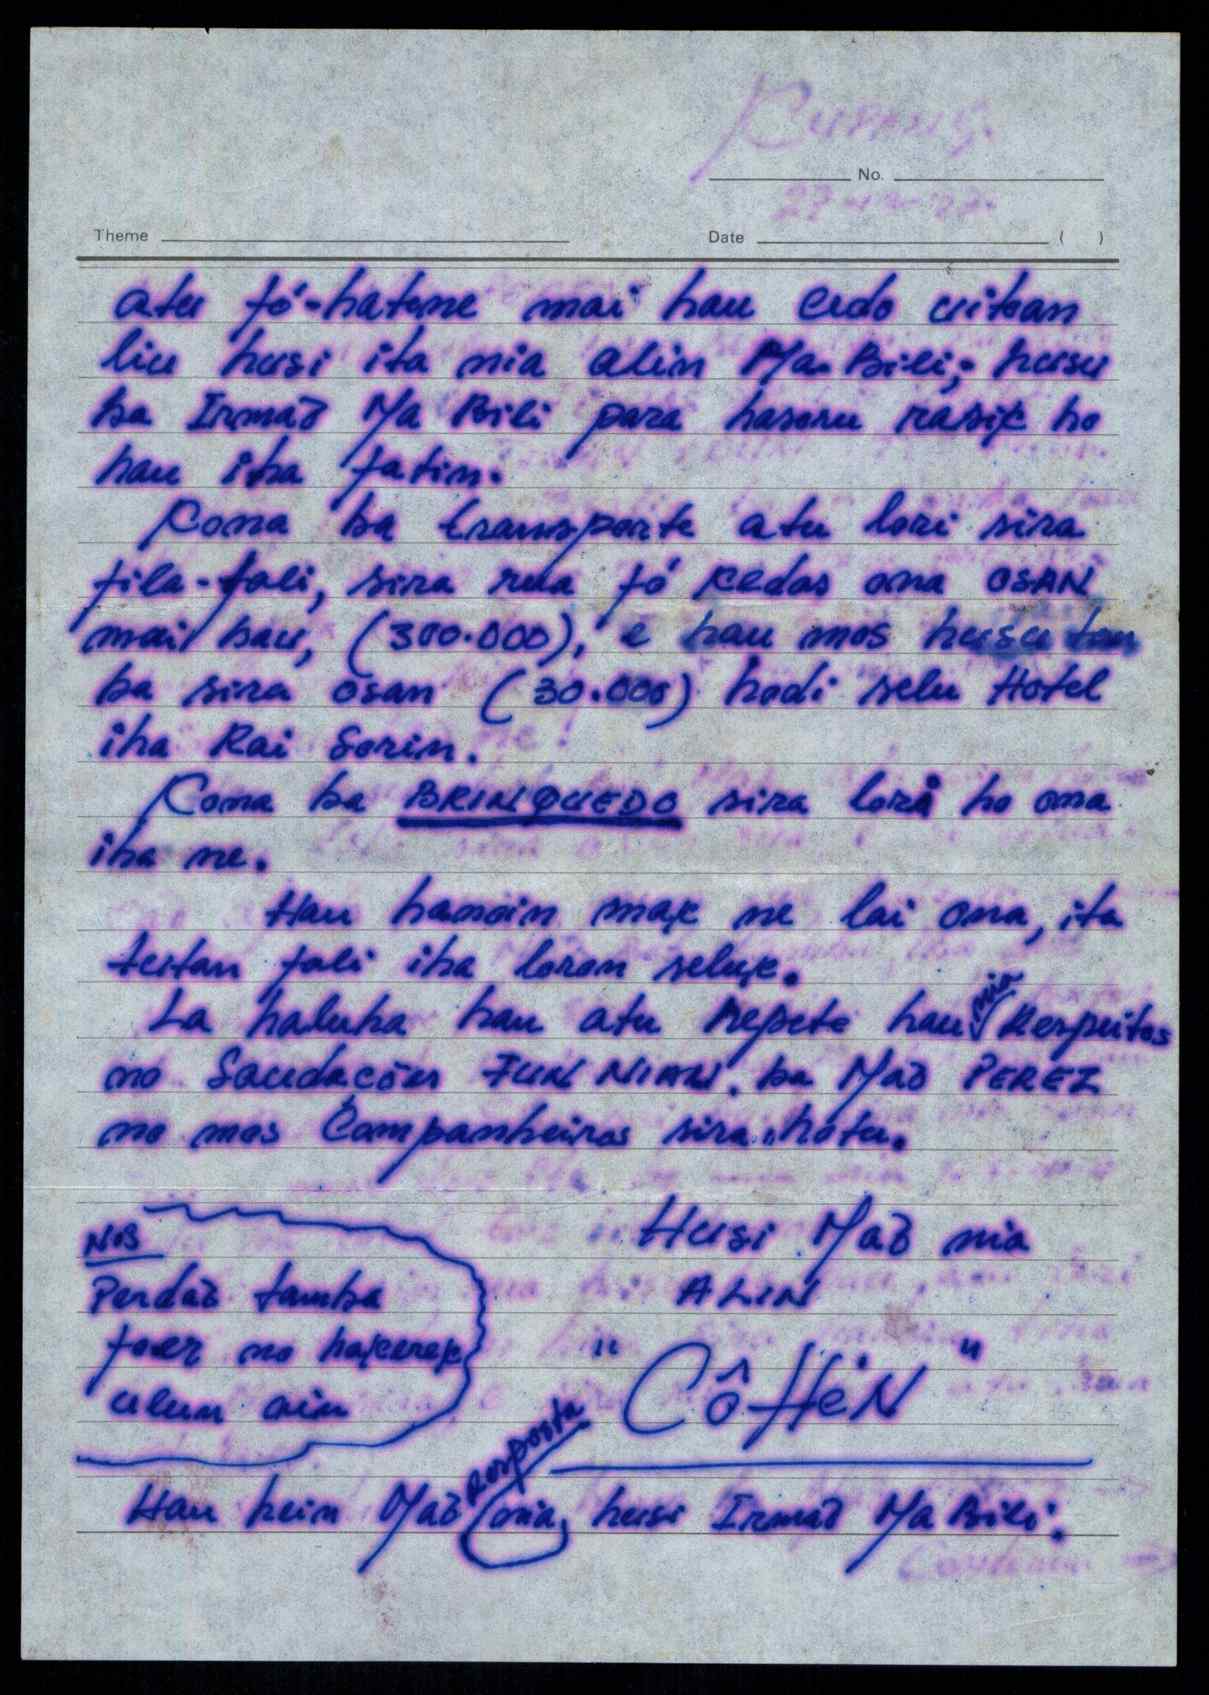 Kupang.
No.
Theme Date ( )
atu fó-hatene mai hau cedo uitoan
liu husi ita nia alin Ma Bili; husu
ba Irmaõ Ma Bili para hasoru rasik ho
hau iha fatin.
Kona ba transporte atu lori sira
fila-fali, sira rua fó kedas ona OSAN
mai hau, (300.000), e hau mos husu tan
ba sira osan (30.000) hodi selu Hotel
iha Rai Sorin.
Kona ba BRINQUEDO sira lori ho ona
iha ne.
Hau hanoin mak ne lai ona, ita
tutan fali iha loron seluk.
La haluha hau atu repete hau nia Respeitos
no Saudacões FUN NIAN. ba Maõ PEREZ
no mos Companheiros sira hotu.
Husi Maõ nia
ALIN
"CôHeN"
NB
Perdaõ tamba
foer no hakerek
ulun oin
Hau hein Maõ nia resposta, husi Irmaõ Ma Bili.